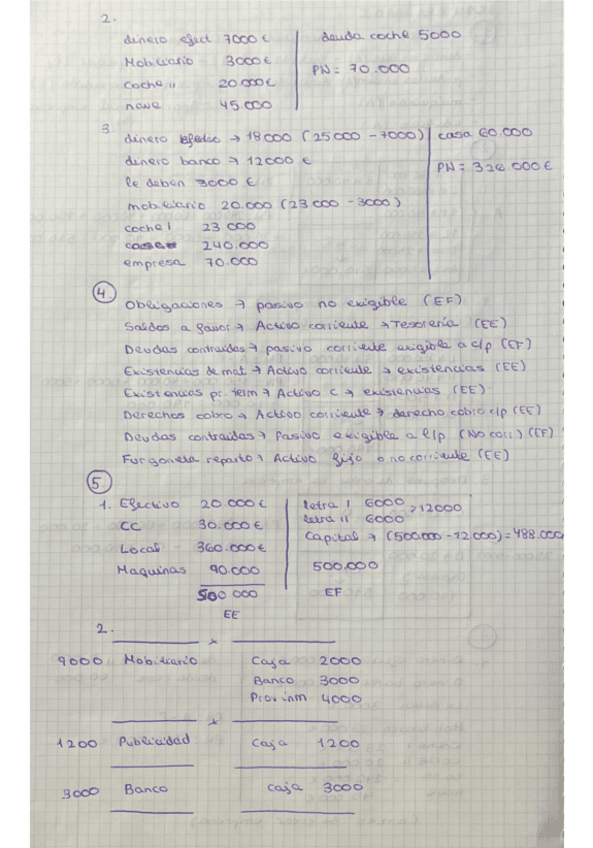 2.
dinero efect 7000 € deuda coche 5000
Mobiliario 3000 €
PN = 70.000
Coche II 20.000 €
nave 45.000
3.
dinero → 18000 (25000 - 7000) casa 60.000
dinero banco → 12000 €
PN = 326 000 €
le deben 3000 €
mobiliario 20.000 (23000 - 3000)
coche I 23.000
240.000
empresa 70.000
4.
Obligaciones → pasivo no exigible (EF)
Saldos a favor → Activo corriente → Tesorería (EE)
Deudas contraidas → pasivo corriente exigible a c/p (EF)
Existencias de mat → Activo corriente → existencias (EE)
Existencias pr. term → Activo C → existencias (EE)
Derechos cobro → Activo corriente → derecho cobro c/p (EE)
Deudas contraidas → Pasivo exigible a l/p (No corr.) (EF)
Furgoneta reparto → Activo fijo o no corriente (EE)
5.
1. Efectivo 20.000 € letra I 6000 > 12000
CC 30.000 € letra II 6000
Local 360.000 € Capital → (500.000 - 12000) = 488.000
Maquinas 90.000 500.000
500 000 EF
EE
2.
9000 Mobiliario Caja 2000
Banco 3000
Prov inm 4000
1200 Publicidad Caja 1200
3000 Banco Caja 3000